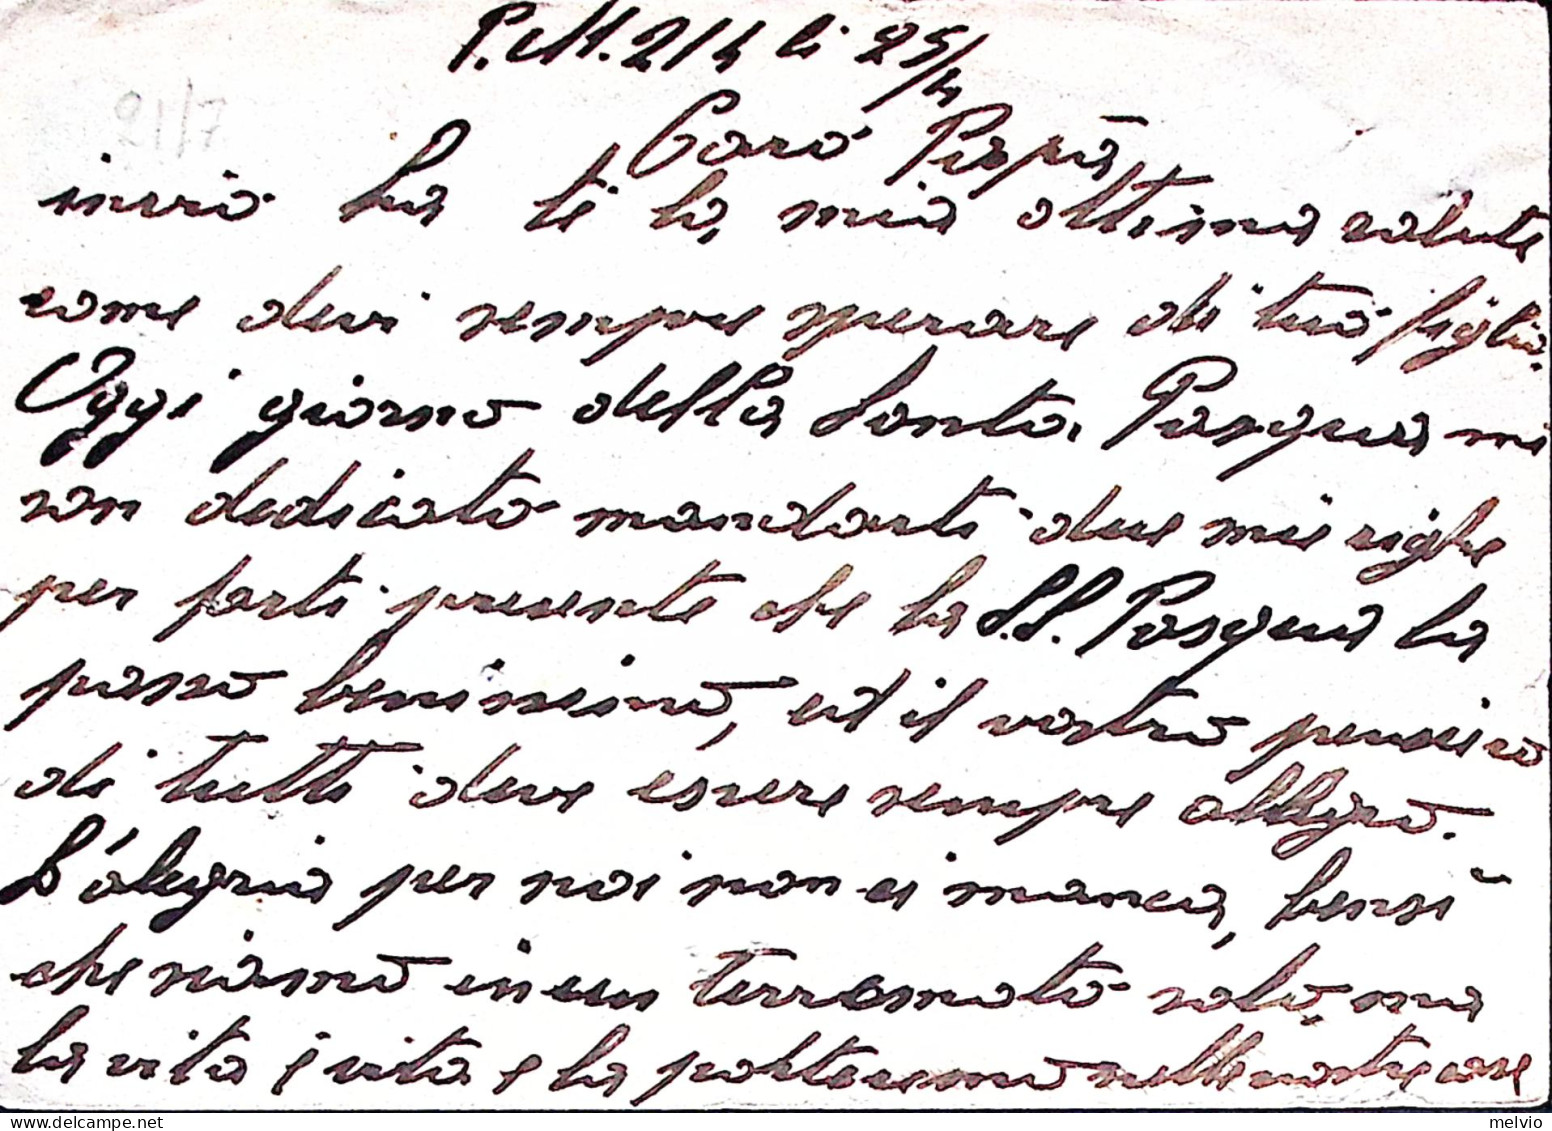 P.M. 214 li 25/4
21/7
Caro Papà
invio La ti la, mia ottima salute
come devi sempre sperare di tuo figlio.
Oggi giorno della Santa. Pasqua mi
son dedicato mandarti due mie righe
per farti presente che la S.S. Pasqua la
passo benissimo, ed il vostro pensiero
di tutti deve essere sempre allegro.
L'alegria per noi non ci manca, bensì
che siamo in un terremoto solo, ma
la vita è vita e la porteremo nelle nostre case
melvio